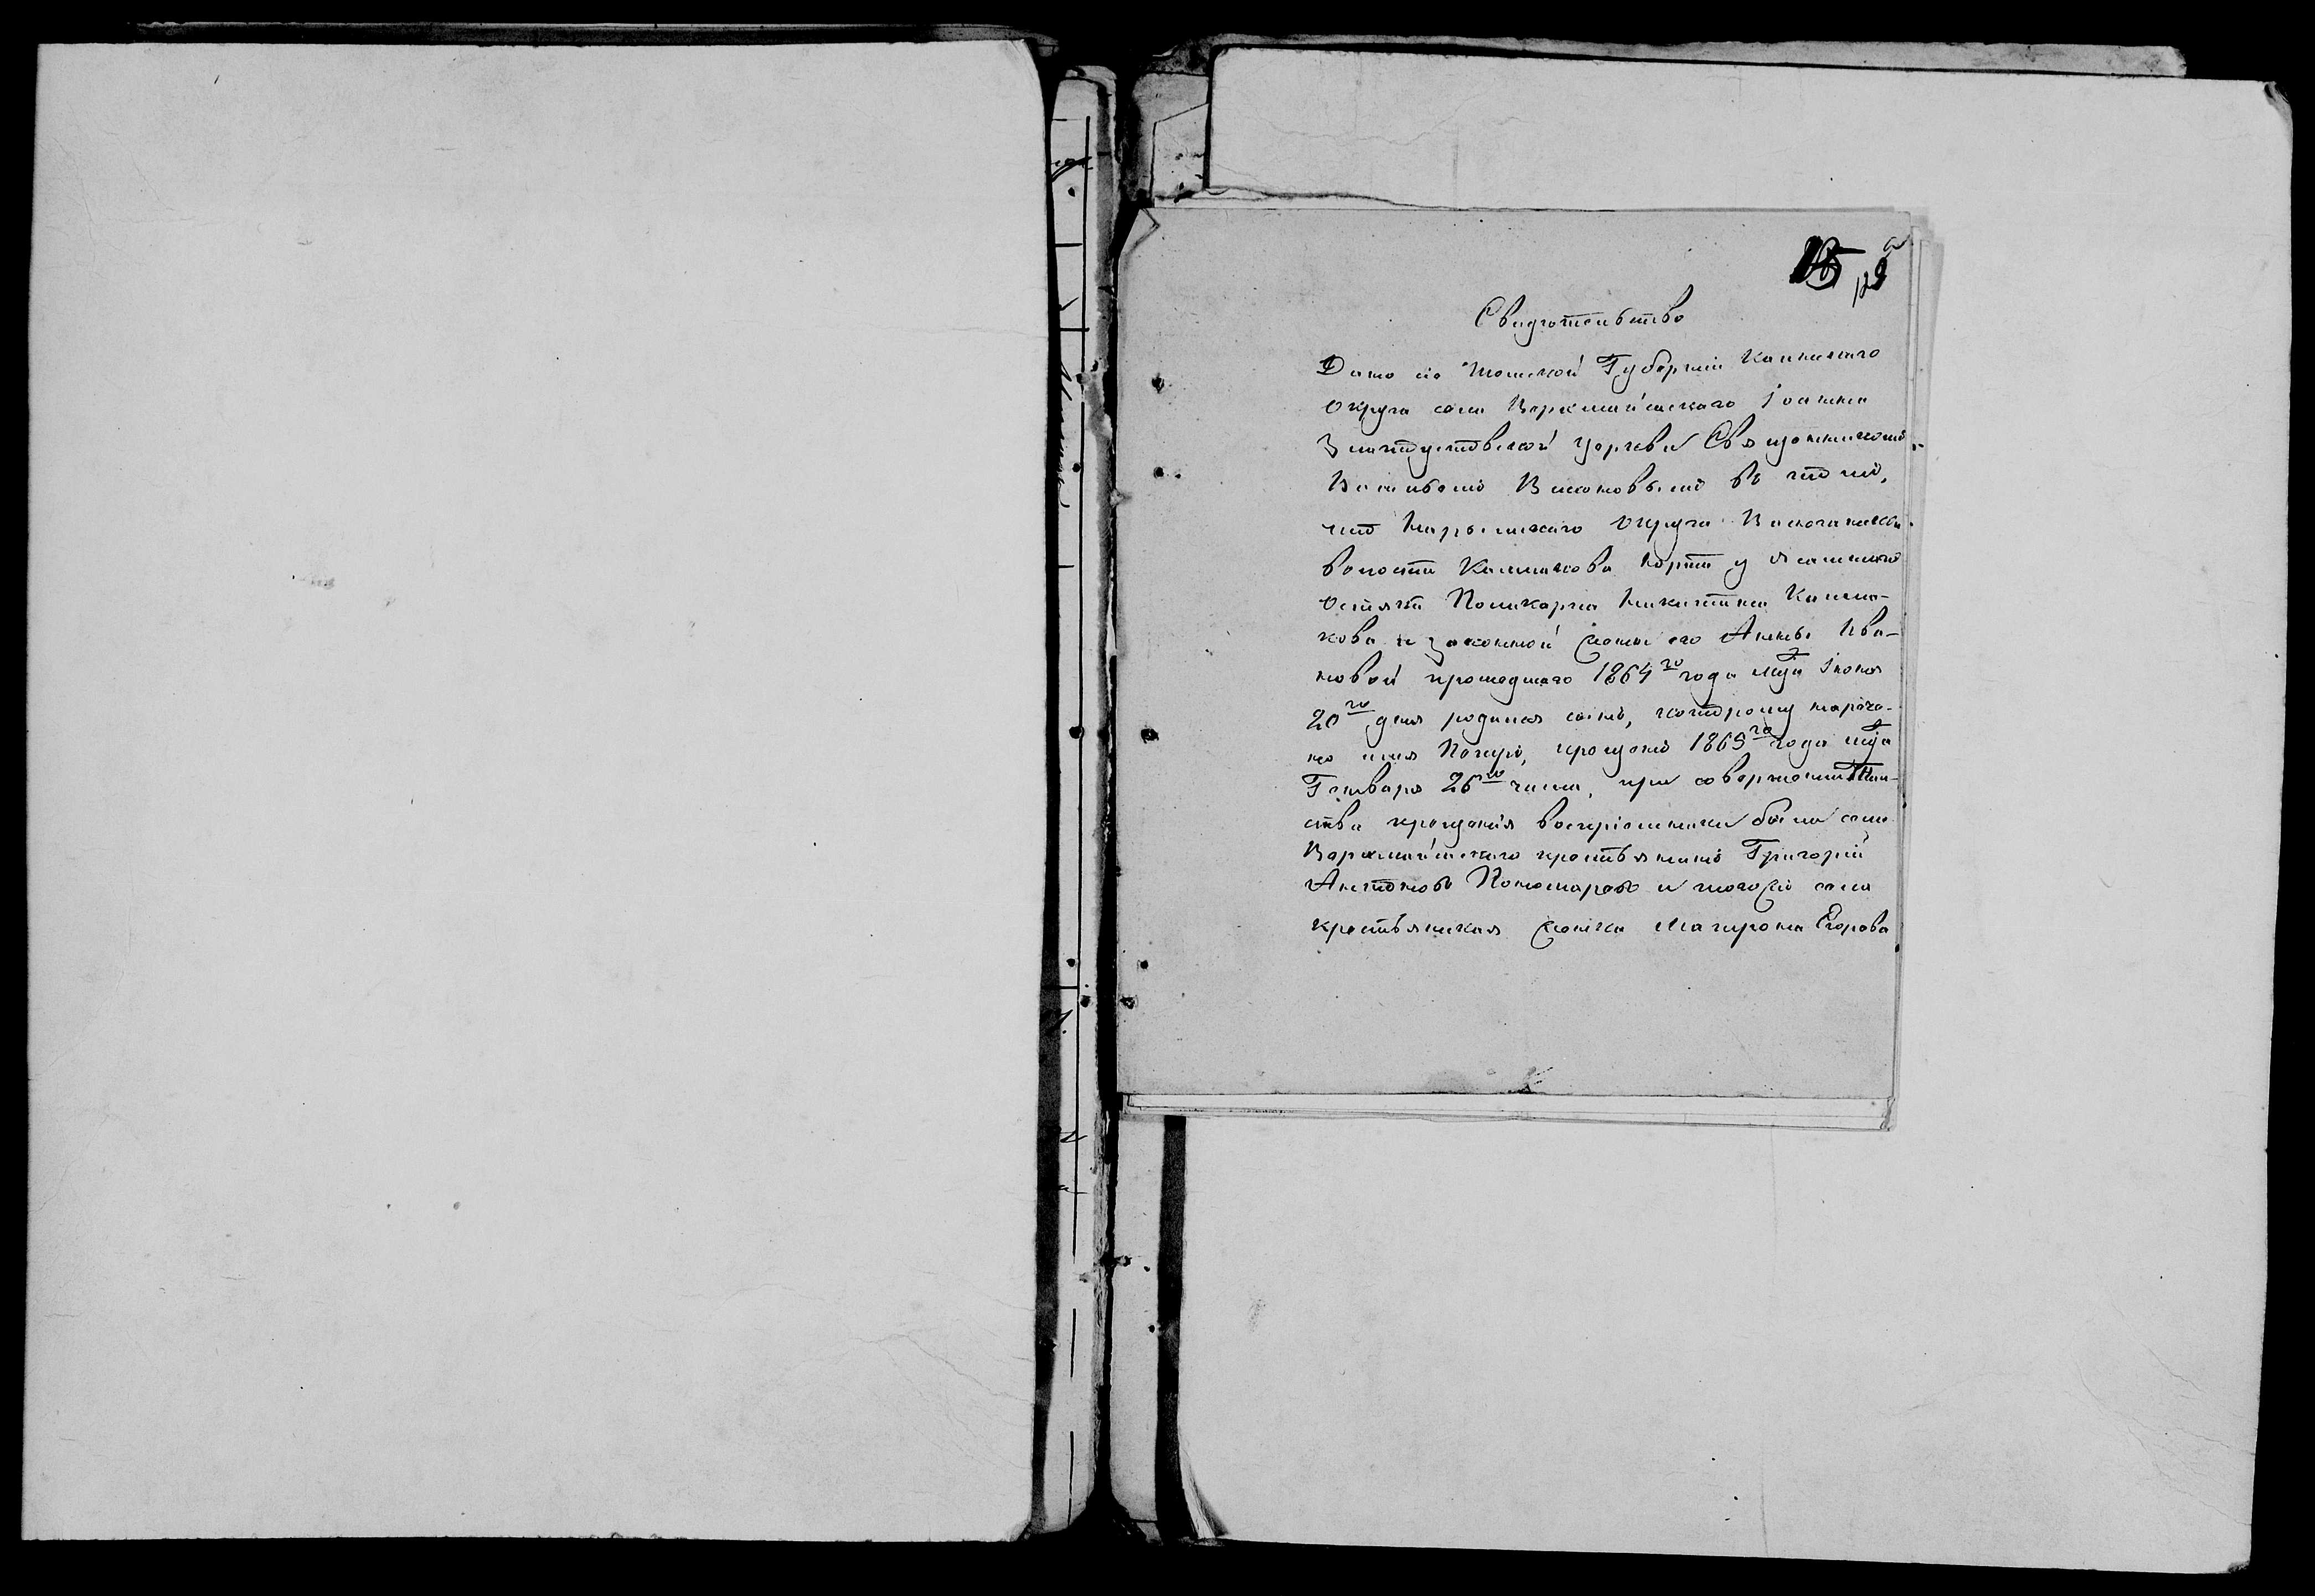 Свидетельство
Дано сіе Томской Губерніи Каинскаго
округа села Верхмайзаскаго Іоанна
Златоустовской церкви Священникомъ
Васильемъ въ томъ,
что Нарымскаго округа
волости Калмакова Юртъ у ясашнаго
остяка Поликарпа Никитина Калма-
кова и законной жены его Анны Ива-
новой прошедшаго 1864го года мца Іюня
20го дня родился сынъ, которому нарѣче-
но имя Петръ, крещенъ 1865го года мца
Генваря 26го числа, при совершеніи Таин-
ства крещенія воспріемники были села
Верхмайзаскаго крестьянинъ Григорій
Антоновъ Пономаревъ и того же села
крестьянская женка Матрона Егорова